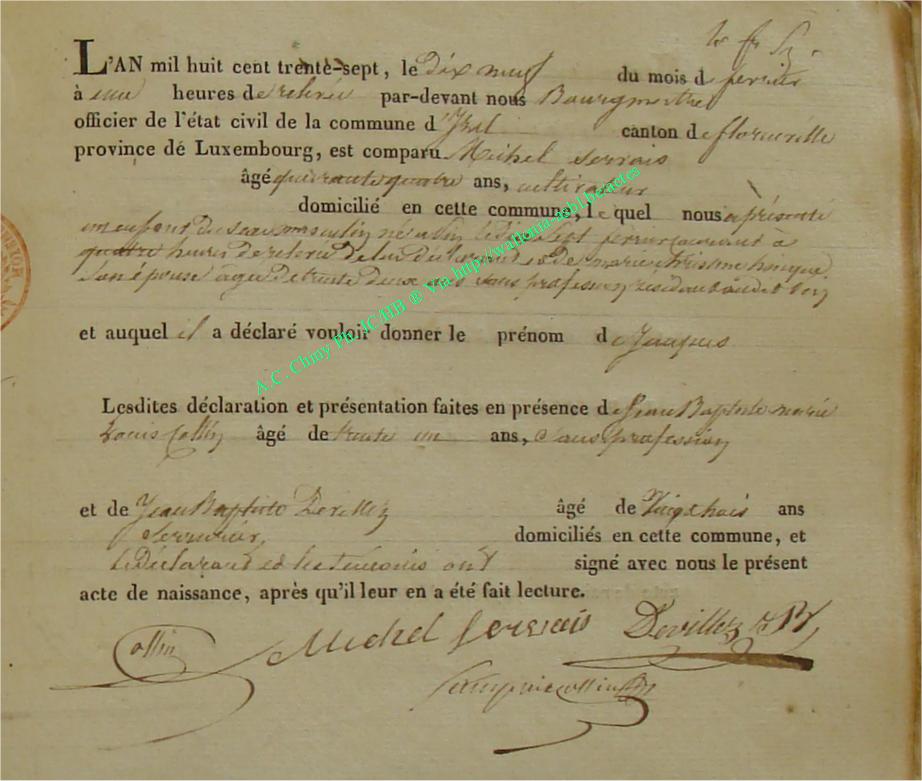 L'AN mil huit cent trente-sept, le dix neuf du mois de février
à une heures de relevée par-devant nous Bourgmestre
officier de l'état civil de la commune d'Izel canton de florenville
province dé Luxembourg, est comparu Michel Servais
âgé quarante quatre ans, cultivateur
domicilié en cette commune, lequel nous a présenté
un enfant du sexe masculin né à le dix sept février courant à
quatre heures de relevée de lui déclarant et de marie
son épouse agée de trente deux ans sans profession
et auquel il a déclaré vouloir donner le prénom de Jacques
Lesdites déclaration et présentation faites en présence de Jean Baptiste marie
Louis Collin âgé de trente un ans, sans profession
et de Jean Baptiste Devillez âgé de ans
serrurier, domiciliés en cette commune, et
le déclarant et les témoins ont signé avec nous le présent
acte de naissance, après qu'il leur en a été fait lecture.
Collin Michel Servais Devillez
A.C. Chiny Ph. JC/HB ® Via http://wallonia-asbl.be/actes